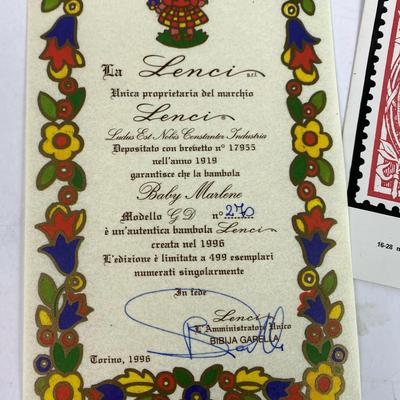 La Lenci s.r.l.
Unica proprietaria del marchio
Lenci
Ludus Est Nobis Constanter Industria
Depositato con brevetto n° 17955
nell'anno 1919
garantisce che la bambola
Baby Marlene
Modello GD n° 270
è un'autentica bambola Lenci
creata nel 1996
L'edizione è limitata a 499 esemplari
numerati singolarmente
In fede
Lenci
L'Amministratore Unico
BIBIJA GARELLA
Torino, 1996
16-28